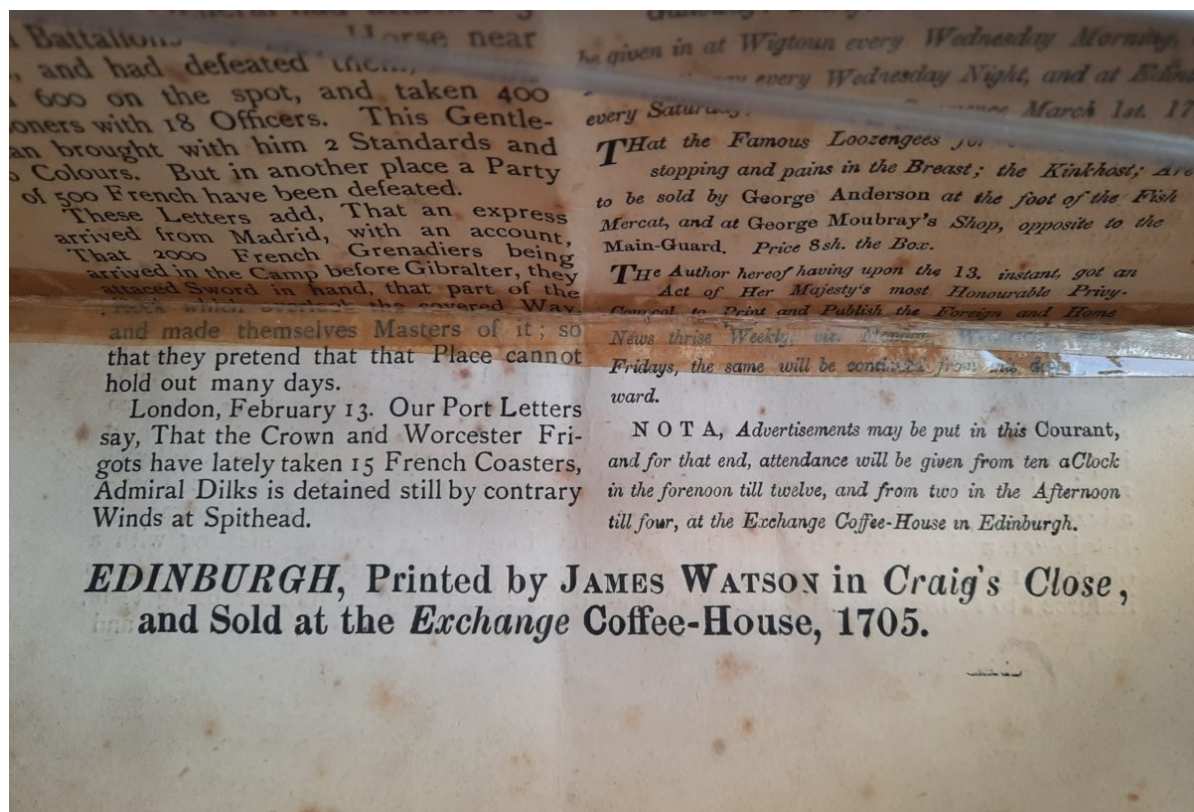 Battalions Horse near
and had defeated them,
600 on the spot, and taken 400
oners with 18 Officers. This Gentle-
an brought with him 2 Standards and
Colours. But in another place a Party
of 500 French have been defeated.
These Letters add, That an express
arrived from Madrid, with an account,
That 2000 French Grenadiers being
arrived in the Camp before Gibralter, they
attaced Sword in hand, that part of the
which the covered Way,
and made themselves Masters of it; so
that they pretend that that Place cannot
hold out many days.
London, February 13. Our Port Letters
say, That the Crown and Worcester Fri-
gots have lately taken 15 French Coasters,
Admiral Dilks is detained still by contrary
Winds at Spithead.
be given in at Wigtoun every Wednesday Morning,
every Wednesday Night, and at Edin
every March 1st. 17
THat the Famous Loozengees for
stopping and pains in the Breast; the Kinkhost; Are
to be sold by George Anderson at the foot of the Fish
Mercat, and at George Moubray's Shop, opposite to the
Main-Guard. Price 8sh. the Box.
THe Author hereof having upon the 13. instant, got an
Act of Her Majesty's most Honourable Privy-
Councel, to Print and Publish the Foreign and Home
News thrise Weekly, viz.
Fridays, the same will be from
ward.
NOTA, Advertisements may be put in this Courant,
and for that end, attendance will be given from ten aClock
in the forenoon till twelve, and from two in the Afternoon
till four, at the Exchange Coffee-House in Edinburgh.
EDINBURGH, Printed by JAMES WATSON in Craig's Close,
and Sold at the Exchange Coffee-House, 1705.